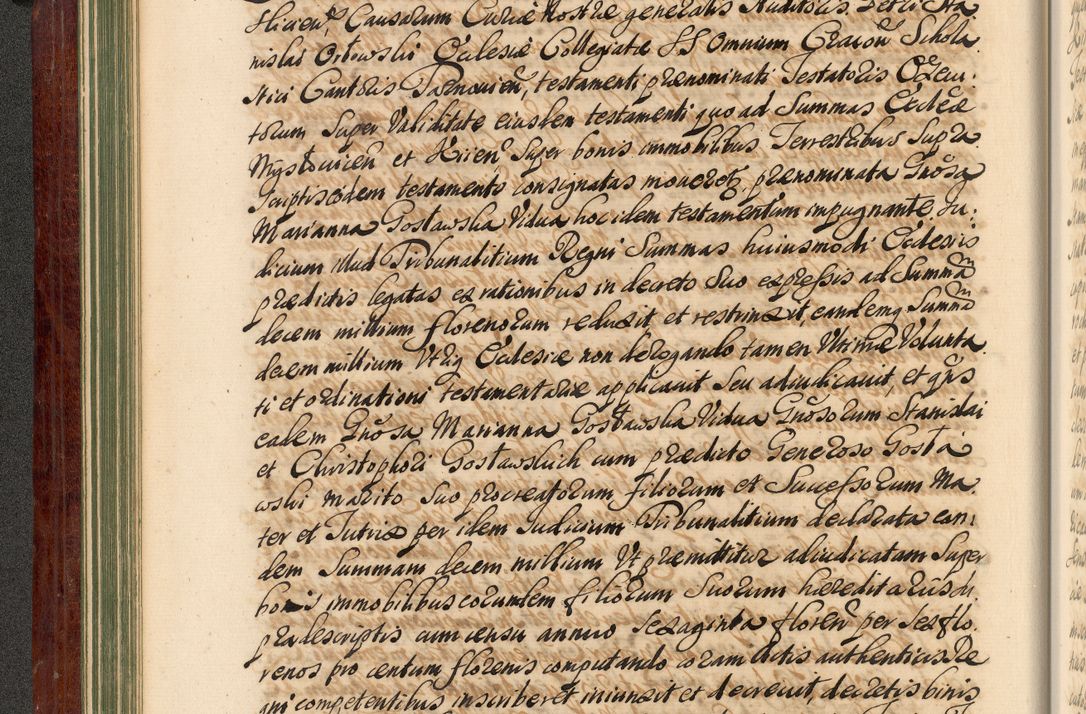 Causarum Curiæ Nostræ generalis Auditoris Petri Sta
nislai Orłowski Ecclesiæ Collegiatæ SS Omnium Cracoũ Schola
stici Cantoris Tarnouień, testamenti prænominati Testatoris Execu:
torum super Validitate eiusdem testamenti quo ad Summas Eccłæ
Mysłowicen̄ et super bonis immobilibus Terrestribus Supra
scriptis eodem testamento consignatas prænominata Gñosa
Marianna Gostawska Vidua hoc idem testamentum impugnante. Ju:
dicium illud Tribunalitium Regni Summas huiusmodi Ecclesiis
prædictis legatas ex rationibus in decreto suo expressis ad Summã
decem millium florenorum reduxit, et restrinxit, eandemq Summã
decem millium Utriq Ecclesiæ non derogando tamen Ultimæ Volunta
ti et ordinationi testamentariæ applicauit seu adiudicauit, et
eadem Gñosa Marianna Gostawska Vidua Gñosorum Stanislai
et Christophori Gostawskich cum prædicto Generoso Gosta
wski Marito suo procreatorum filiorum et Successorum Ma
ter et Tutrix per idem Judicium Tribunalitium declarata ean:
dem Summam decem millium Ut præmittitur adiudicatam super
bonis immobilibus eorumdem filiorum suorum hæreditariis
prædescriptis cum censu annuo sexaginta floren̄ per sex flo.
renos pro centum florenis computando coram Actis authenticis Re
gni competentibus inscriberet iniunxit et decreuit, decretis binis